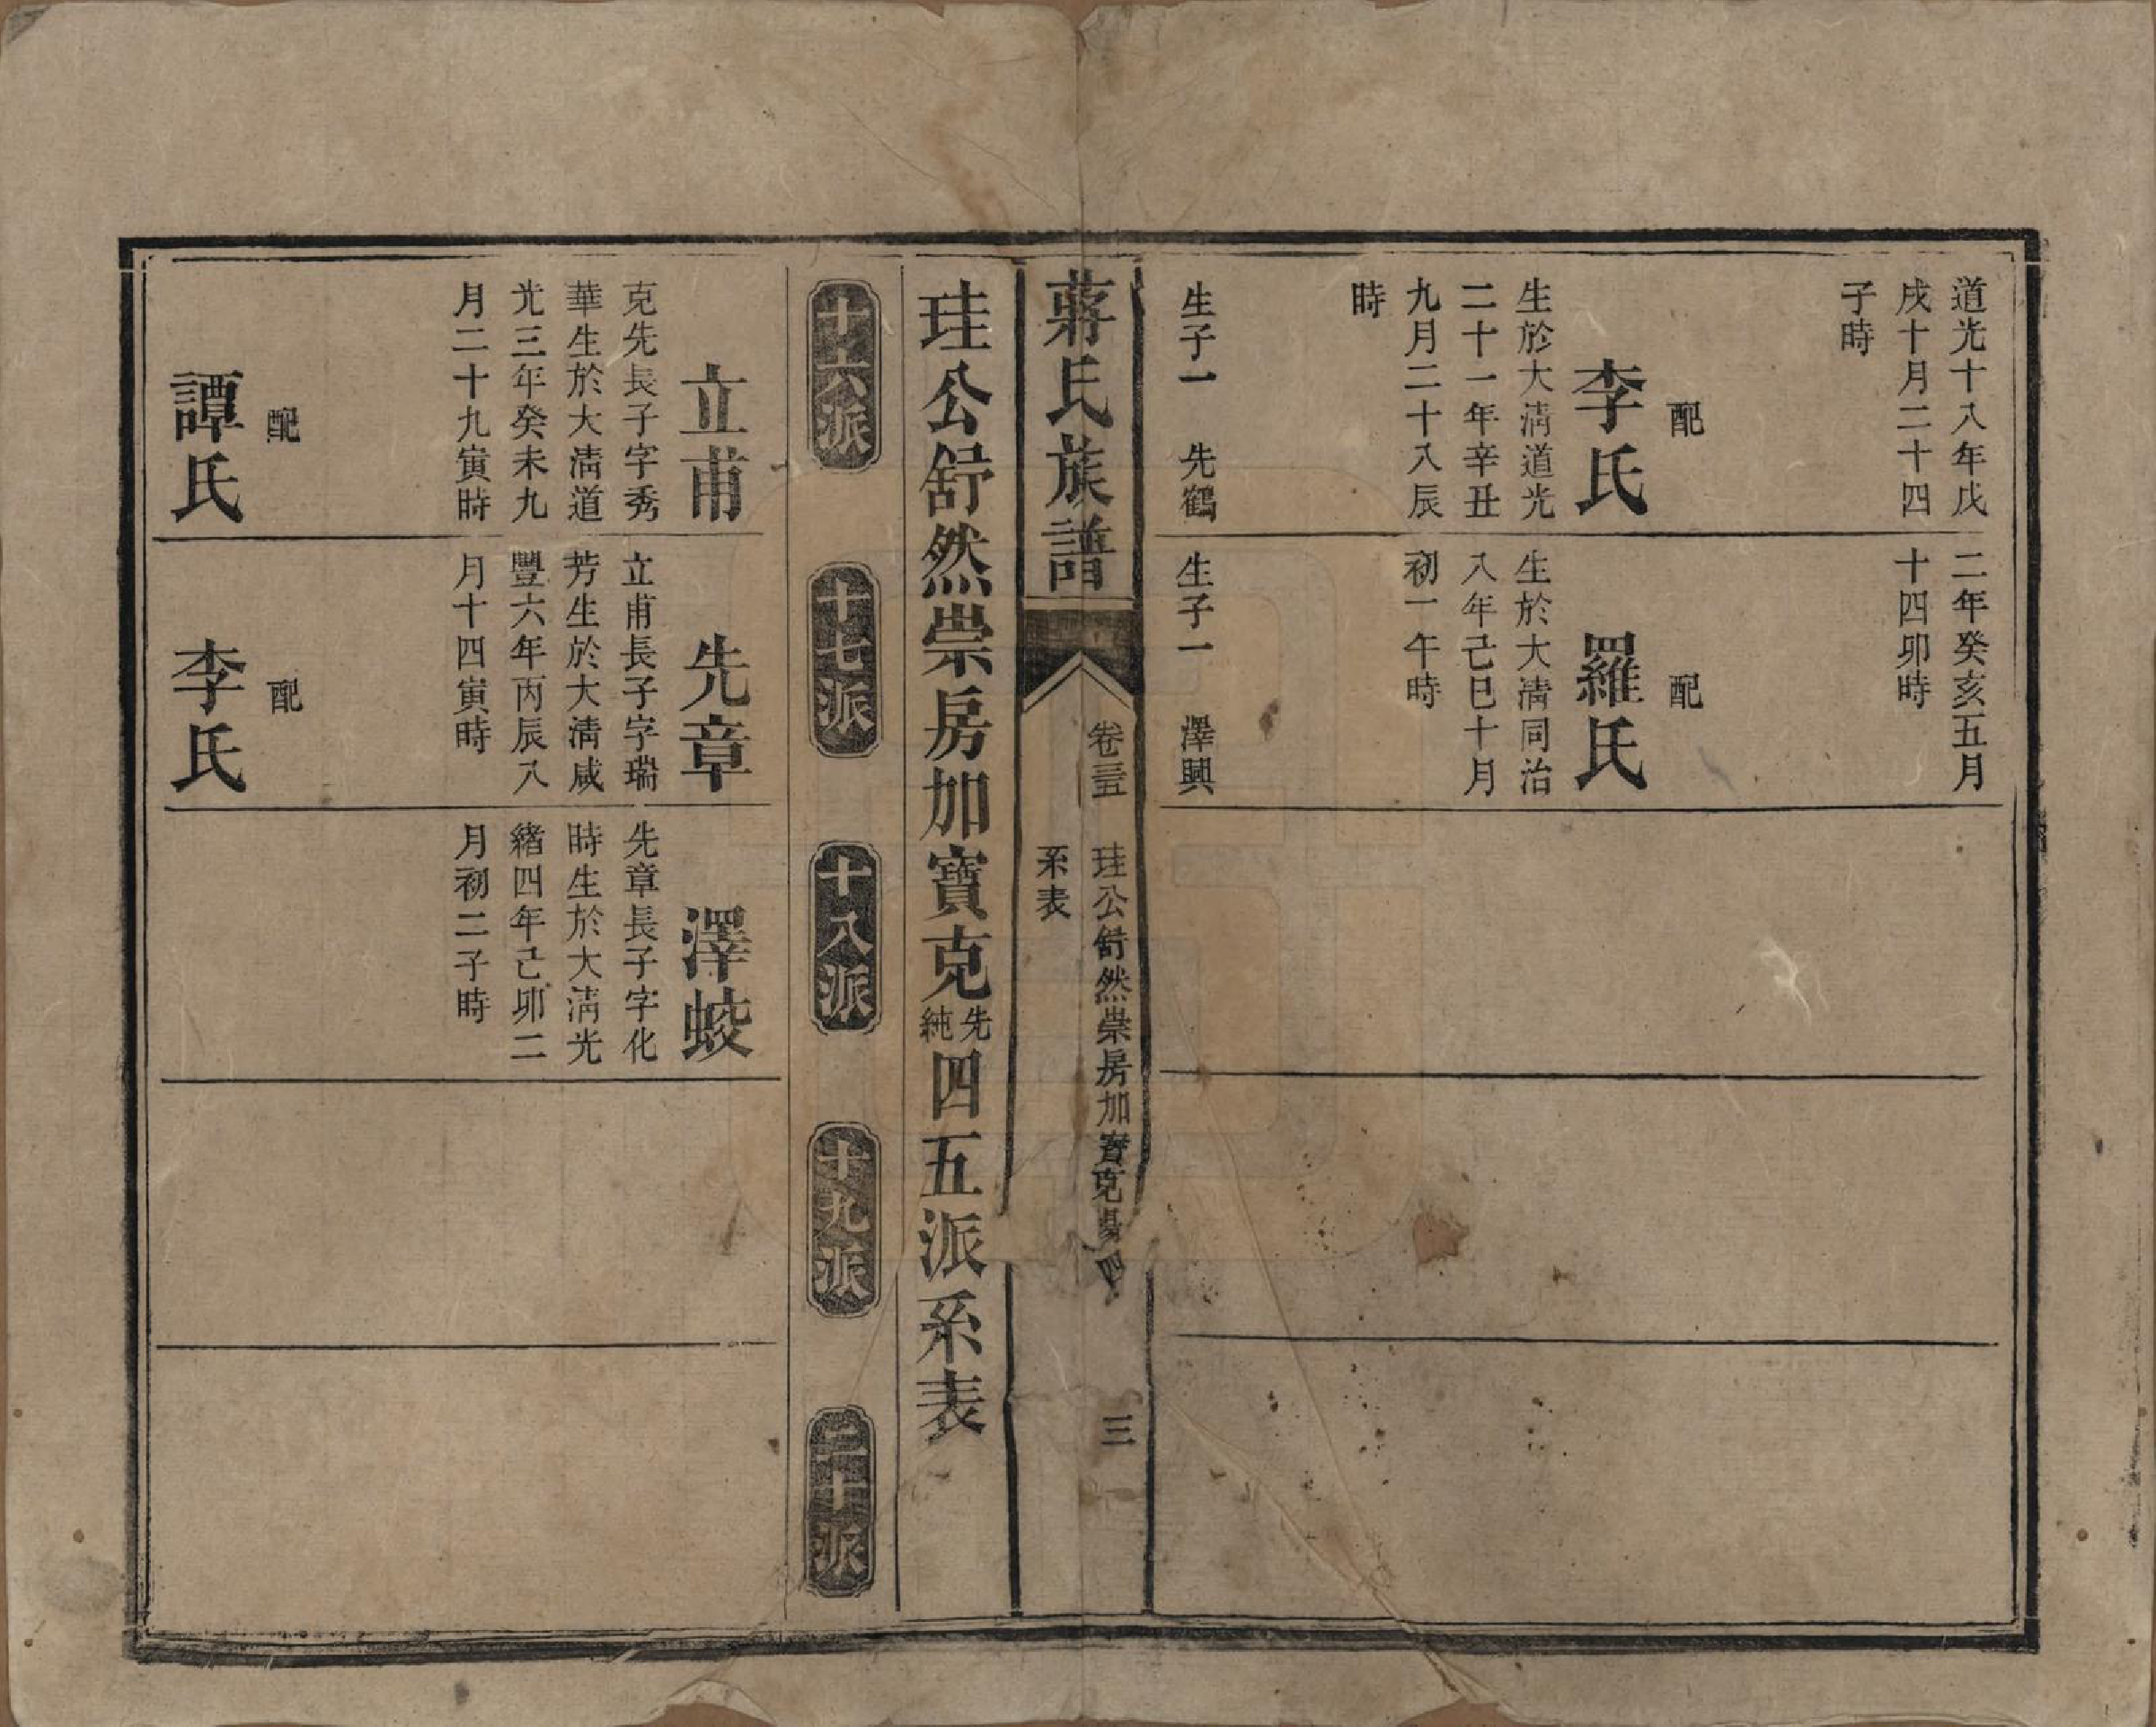 道光十八年戊
戌十月二十四
子時
配
李氏
生於大淸道光
二十一年辛丑
九月二十八辰
時
生子一　先鶴
二年癸亥五月
十四卯時
配
羅氏
生於大淸同治
八年己巳十月
初一午時
生子一　澤興
蔣氏族譜
卷三十五　珪公舒然崇房加寶克
系表
三
珪公舒然崇房加寶克先純四五派系表
十六派
十七派
十八派
十九派
二十派
立甫
克先長子字秀
華生於大淸道
光三年癸未九
月二十九寅時
配
譚氏
先章
立甫長子字瑞
芳生於大淸咸
豐六年丙辰八
月十四寅時
配
李氏
澤蛟
先章長子字化
時生於大淸光
緒四年己卯二
月初二子時